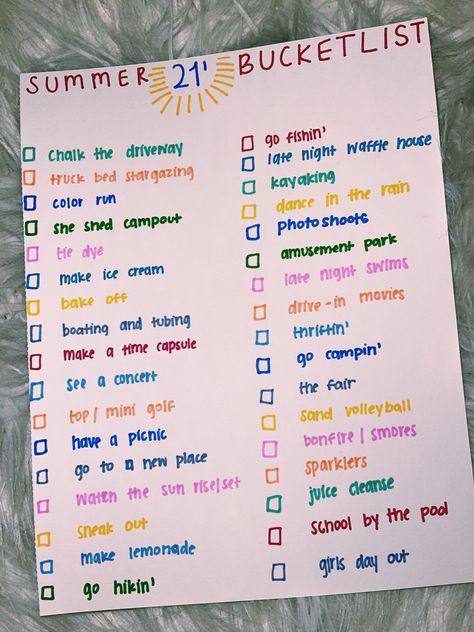 SUMMER 21' BUCKETLIST
chalk the driveway
truck bed stargazing
color run
she shed campout
tie dye
make ice cream
bake off
boating and tubing
make a time capsule
see a concert
top/mini golf
have a picnic
go to a new place
watch the sun rise/set
sneak out
make lemonade
go hikin'
go fishin'
late night waffle house
kayaking
dance in the rain
photoshoots
amusement park
late night swims
drive-in movies
thriftin'
go campin'
the fair
sand volleyball
bonfire/smores
sparklers
juice cleanse
school by the pool
girls day out